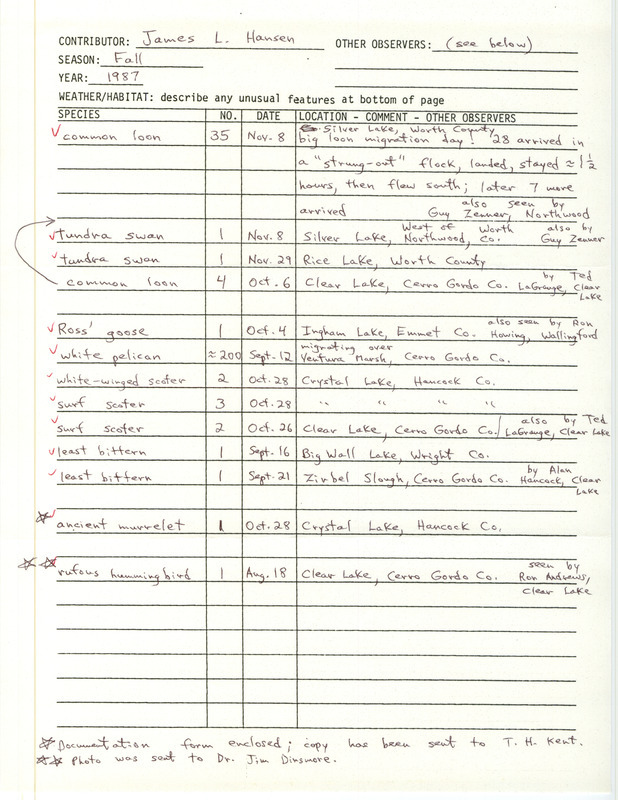 CONTRIBUTOR: James L. Hansen OTHER OBSERVERS: (see below)
SEASON: Fall
YEAR: 1987
WEATHER/HABITAT: describe any unusual features at bottom of page
SPECIES NO. DATE LOCATION - COMMENT - OTHER OBSERVERS
Silver Lake, Worth County
common loon 35 Nov. 8 big loon migration day! 28 arrived in
a "strung-out" flock, landed, stayed ≈ 1 1/2
hours, then flew south; later 7 more
arrived also seen by Guy Zenner, Northwood
tundra swan 1 Nov. 8 Silver Lake, West of Northwood, Worth Co. also by Guy Zenner
tundra swan 1 Nov. 29 Rice Lake, Worth County
common loon 4 Oct. 6 Clear Lake, Cerro Gordo Co. by Ted LaGrange, Clear Lake
Ross' goose 1 Oct. 4 Ingham Lake, Emmet Co. also seen by Ron Howing, Wallingford
white pelican ≈200 Sept. 12 migrating over Ventura Marsh, Cerro Gordo Co.
white-winged scoter 2 Oct. 28 Crystal Lake, Hancock Co.
surf scoter 3 Oct. 28 " " "
surf scoter 2 Oct. 26 Clear Lake, Cerro Gordo Co./ also by Ted LaGrange, Clear Lake
least bittern 1 Sept. 16 Big Wall Lake, Wright Co.
least bittern 1 Sept. 21 Zirbel Slough, Cerro Gordo Co. by Alan Hancock, Clear Lake
☆ ancient murrelet 1 Oct. 28 Crystal Lake, Hancock Co.
☆☆ rufous hummingbird 1 Aug. 18 Clear Lake, Cerro Gordo Co. seen by Ron Andrews, Clear Lake
☆ Documentation form enclosed; copy has been sent to T. H. Kent.
☆☆ Photo was sent to Dr. Jim Dinsmore.